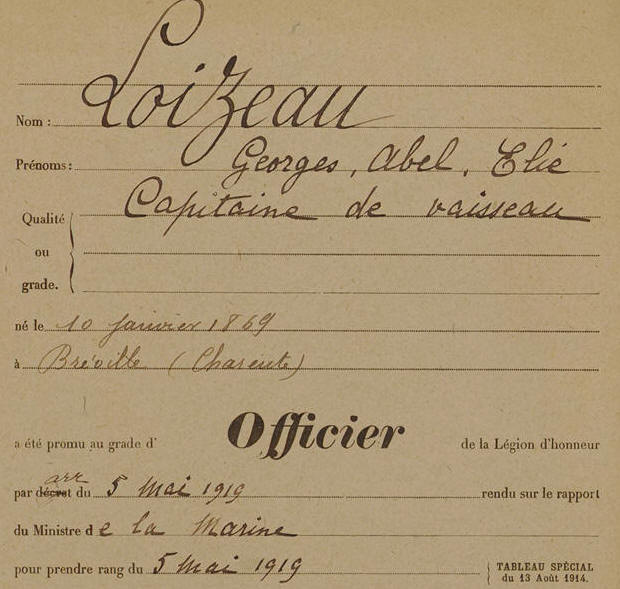 Nom : Loizeau
Prénoms : Georges, Abel, Elie
Qualité ou grade. Capitaine de vaisseau
né le 10 janvier 1869
à Bréville (Charente)
a été promu au grade d' Officier de la Légion d'honneur
arr
par décret du 5 Mai 1919 rendu sur le rapport
du Ministre de la Marine
pour prendre rang du 5 Mai 1919
TABLEAU SPÉCIAL
du 13 Août 1914.